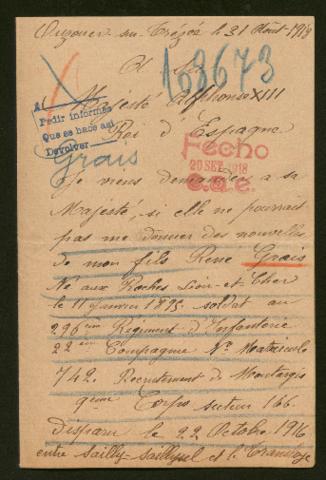 Ouzouer-sur-Trézée le 31 Août 1918
168673
A Sa
Majesté Alphonse XIII
Roi d'Espagne
A
Pedir informes
Que se hace asi
Devolver
Grais
Fecho
20 SET. 1918
Je viens demander a sa
Majesté, si elle ne pourrait
pas me donner des nouvelles
de mon fils René Grais
Né aux Roches Loir-et-Cher
le 11 Janvier 1895 soldat au
296ème Régiment d'Infanterie
22ème Compagnie No Matricule
742. Recrutement de Montargis
9ème Corps secteur 166
disparu le 22 Octobre 1916
entre Sailly-Saillisel et le Transloye